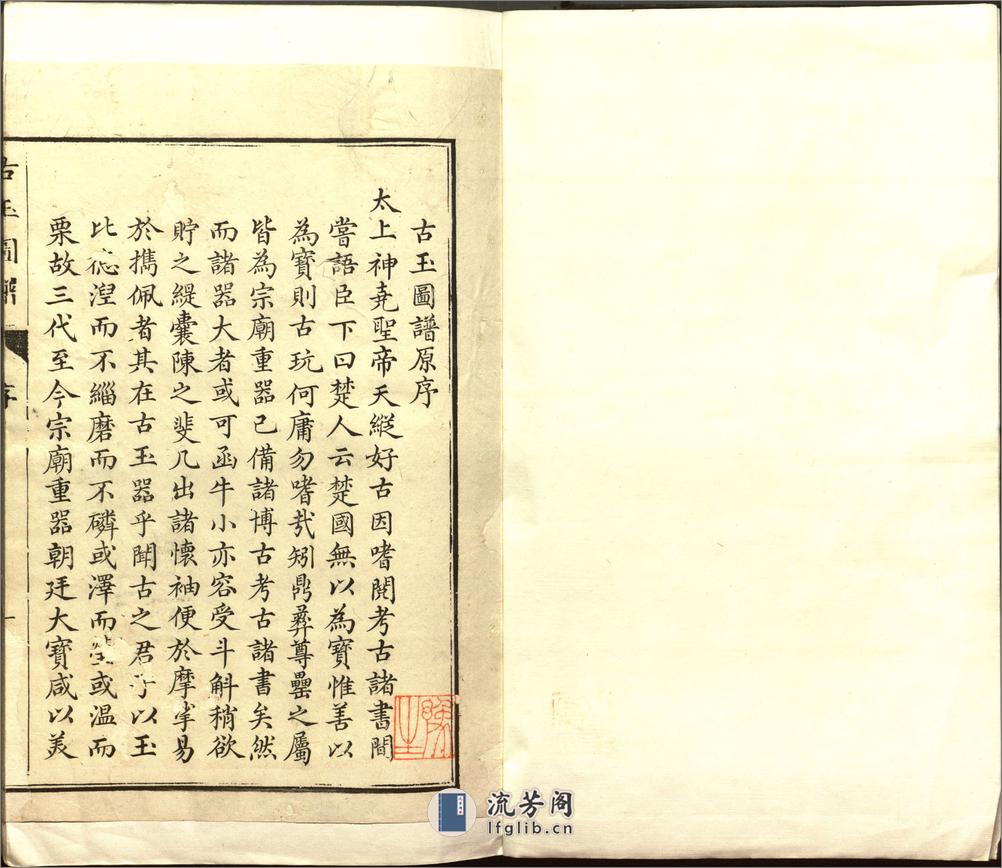 古玉圖譜原序
太上神堯聖帝天縱好古因嗜閱考古諸書間
嘗語臣下曰楚人云楚國無以為寶惟善以
為寶則古玩何庸勿嗜㢤矧鼎彝尊罍之屬
皆為宗廟重器已備諸博古考古諸書矣然
而諸器大者或可函牛小亦容受斗斛稍欲
貯之緹囊陳之斐几出諸懷袖便於摩挲易
於攜佩者其在古玉器乎聞古之君子以玉
比德湼而不緇磨而不磷或澤而瑩或温而
栗故三代至今宗廟重器朝廷大寶咸以美
古玉圖譜
序
一
流芳阁
lfglib.cn